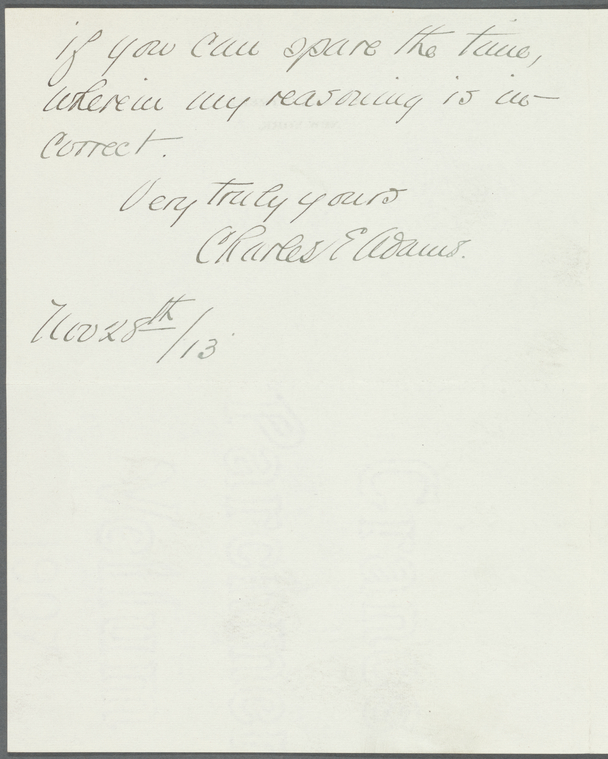 if you can spare the time,
wherein my reasoning is in-
correct.
Very truly yours
Charles E Adams.
Nov 28th/13